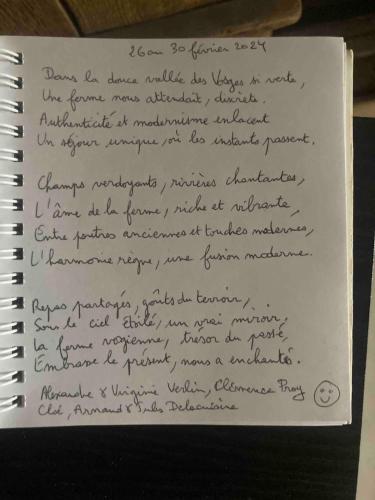 26 au 30 février 2024
Dans la douce vallée des Vosges si verte,
Une ferme nous attendait, discrète.
Authenticité et modernisme enlacent
Un séjour unique, où les instants passent.
Champs verdoyants, rivières chantantes,
L'âme de la ferme, riche et vibrante,
Entre poutres anciennes et touches modernes,
L'harmonie règne, une fusion moderne.
Repas partagés, goûts du terroir,
Sous le ciel étoilé, un vrai miroir.
La ferme vosgienne, trésor du passé,
Embrasse le présent, nous a enchantés.
Alexandre & Virginie Verlin, Clémence Proy
Cloé, Arnaud & Jules Delacuisine